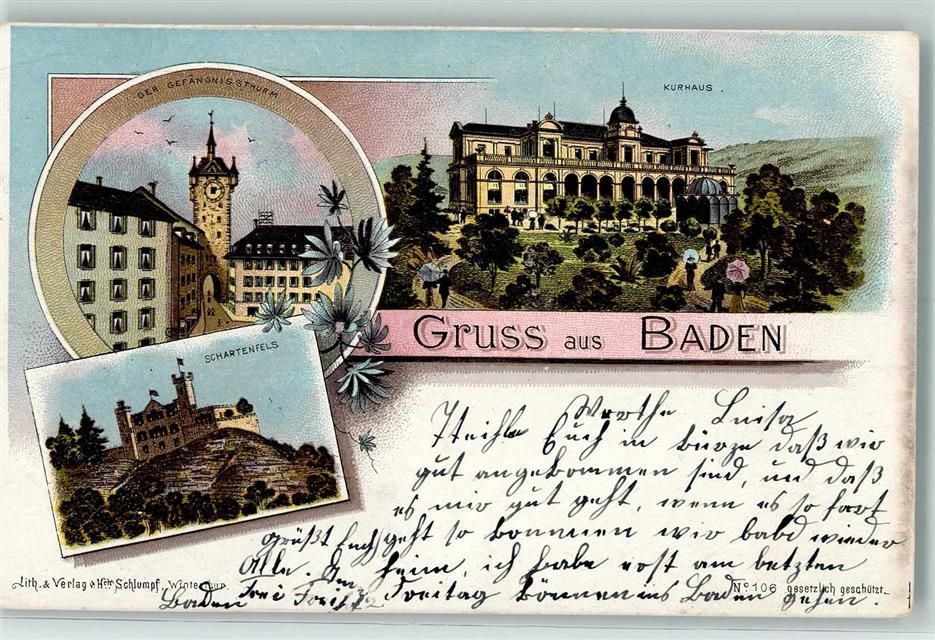 DER GEFÄNGNISSTHURM
KURHAUS.
SCHARTENFELS
GRUSS AUS BADEN
Werthe Luisa
Theile Euch in bürze daß wir
gut angekommen sind, und daß
es mir gut geht, wenn es so fort
geht so kommen wir bald wieder
heim, ich habe erst am letzten
Freitag können ins Baden gehen.
grüßt Euch
Alle.
Baden
Lith. & Verlag v. Hch. Schlumpf, Winterthur.
No 106 gesetzlich geschützt.